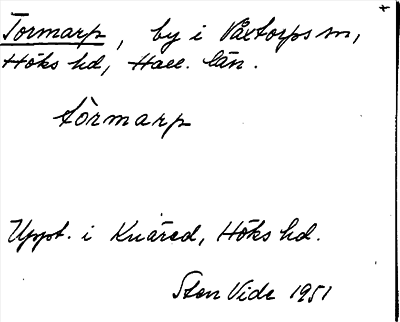 Tormarp, by i Våxtorps sn,
Höks hd, Hall. län.
tòrmarp
Uppt. i Knäred, Höks hd.
Sten Vide 1951